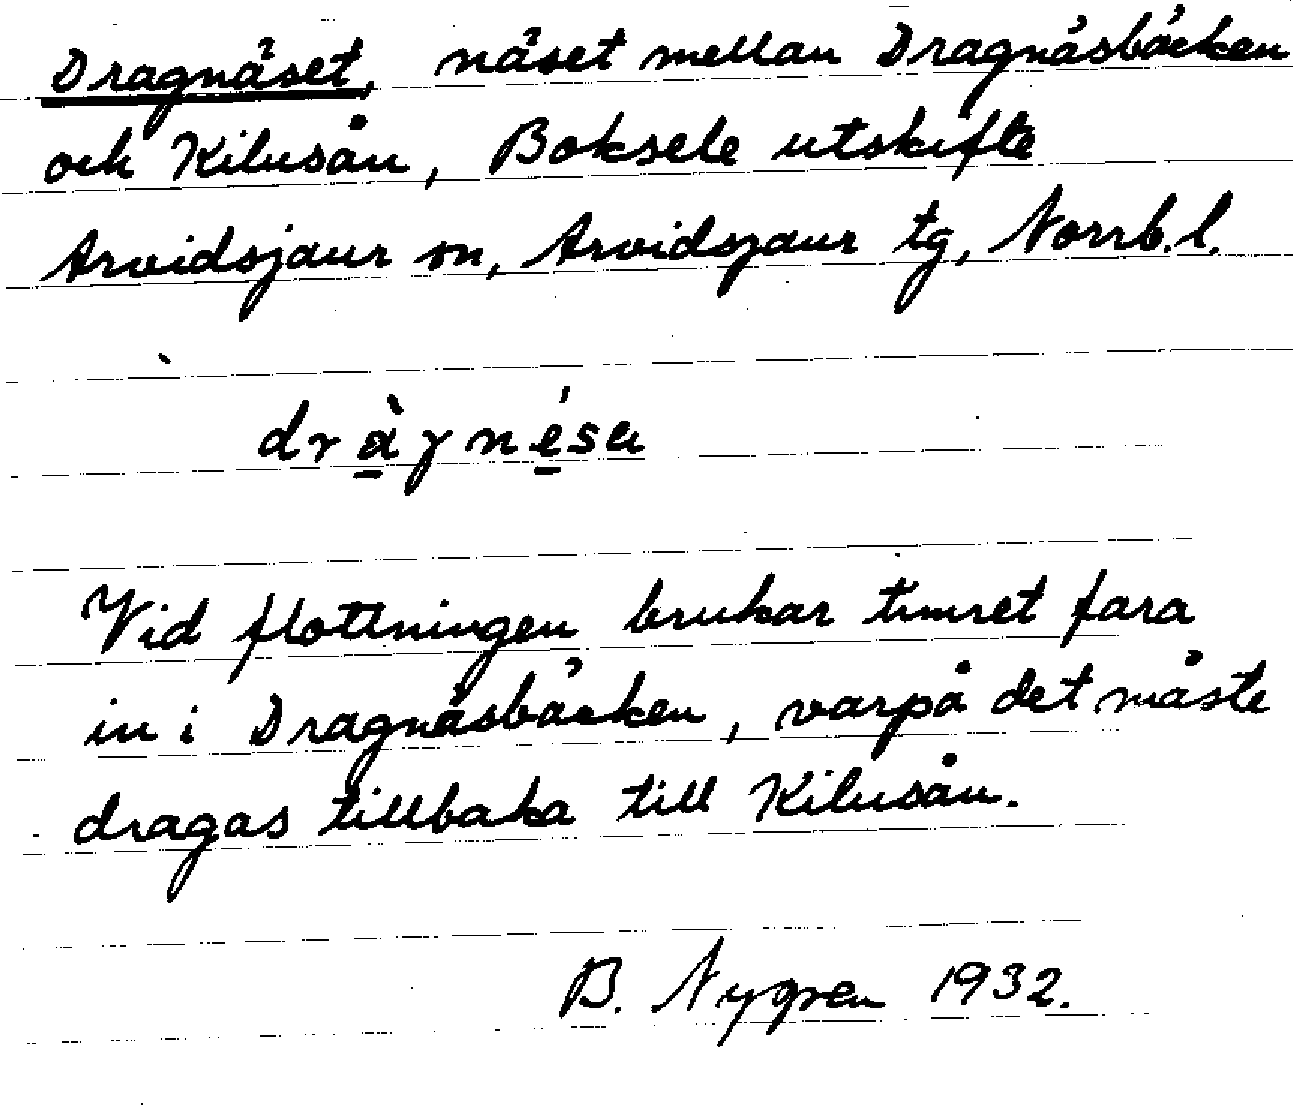 Dragnäset, näset mellan Dragnäsbäcken
och Kilusån, Boksele utskifte
Arvidsjaur sn, Arvidsjaur tg, Norrb.l.
dràgnésa
Vid flottningen brukar timret fara
in i Dragnäsbäcken, varpå det måste
dragas tillbaka till Kilusån.
B. Nygren 1932.